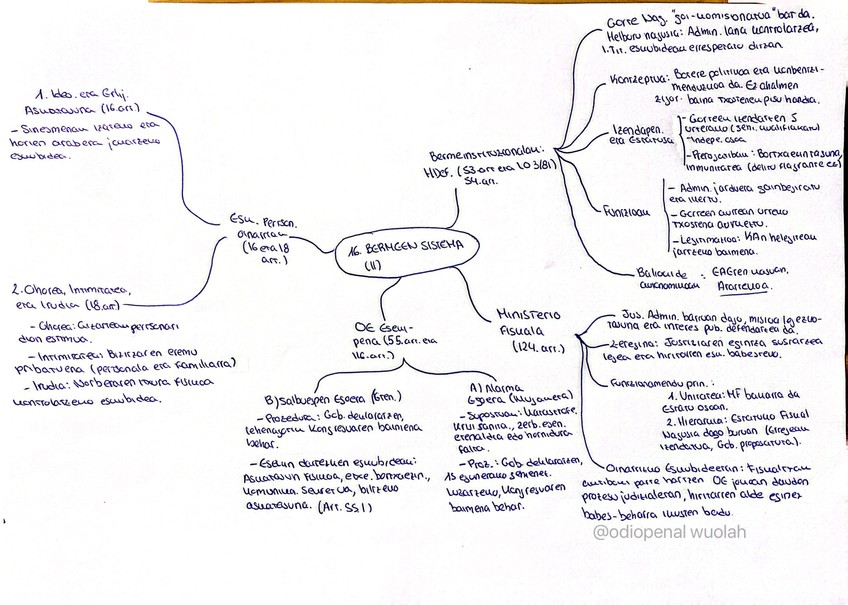 16. BERMEEN SISTEMA
(II)
Esk. Pertson.
oinarrian
(16 era 18
art.)
1. Ideo. eta Erlij.
Askatasuna (16.art)
- Sinesmenak izateko eta
horien arabera jarduteko
eskubidea.
2. Ohorea, Intimitatea,
eta Irudia (18.art)
- Ohorea: Gizartean pertsonari
dion estimua.
- Intimitatea: Bizitzaren eremu
pribatuena (pertsonala eta familiarra)
- Irudia: Norberaren itxura fisikoa
kontrolatzeko eskubidea.
Berme instituzionalak:
HDef. (53.art eta LO 3/81)
54.art.
Gorte Nag. "goi-komisionatua" bat da.
Helburu nagusia: Admin. lana kontrolatzea,
I.Tit. eskubideak errespetatu ditzan
Kontzeptua: Botere politikoa eta konbentzi-
mendukoa da. Ez ahalmen
zigor. baina txostenen pisu handia.
Izendapen.
eta Estatusa
- Gorteek izendatzen 5
urterako (3/5en. kualifikatua)
- Indepe.osoa
- Prerogatibak: Bortxaezintasuna,
immunitatea (delitu flagrante ez)
Funtzioak
- Admin. jarduera gainbegiratu
eta ikertu.
- Gorteen aurrean urteko
txostena aurkeztu.
- Legitimatioa: KAk helegiteak
jartzeko baimena.
Baliokide
autonomikoak
: EAEren kasuan,
Ararteko a.
Ministerio
Fiskala
(124.art.)
Jus. Admin. barruan dago, misioa legezko-
tasuna eta interes pub. defendatzea da.
Zeregina: Justiziaren egintza sustatzea
legea eta hiritarren esku. babesteko.
Funtzionamendu prin.:
1. Unitatea: MF bakarra da
Estatu osoan.
2. Hierarkia: Estatuko Fiskal
Nagusia dago buruan (Erregeak
izendatua, Gob. proposatuta).
Oinarrizko Eskubideetan: Fiskaltzak
aktiboki parte hartzen OE jokoan dauden
prozesu judizialetan, hiritarren alde eginez
babes-beharra ikusten badu.
OE Eseki-
pena (55.art. eta
116.art.)
B) Salbuespen Egoera (Gren.)
- Prozedura: Gob. deklaratzen,
lehenagotik Kongresuaren baimena
behar.
- Esekin daitezkeen eskubideak:
Askatasun fisikoa, etxe. bortxaezin.,
komunika. sekretua, biltzeko
askatasuna. (Art. 55.1)
A) Alarma
Egoera (Mugamera)
- Supostuak: Katastrofe,
krisi sanita., zerb. esen.
etenaldia edo hornidura
falta.
- Proz.: Gob. deklaratzen,
15 egunerako gehienez.
Luzatzeko, Kongresuaren
baimena behar.
@odiopenal wuolah